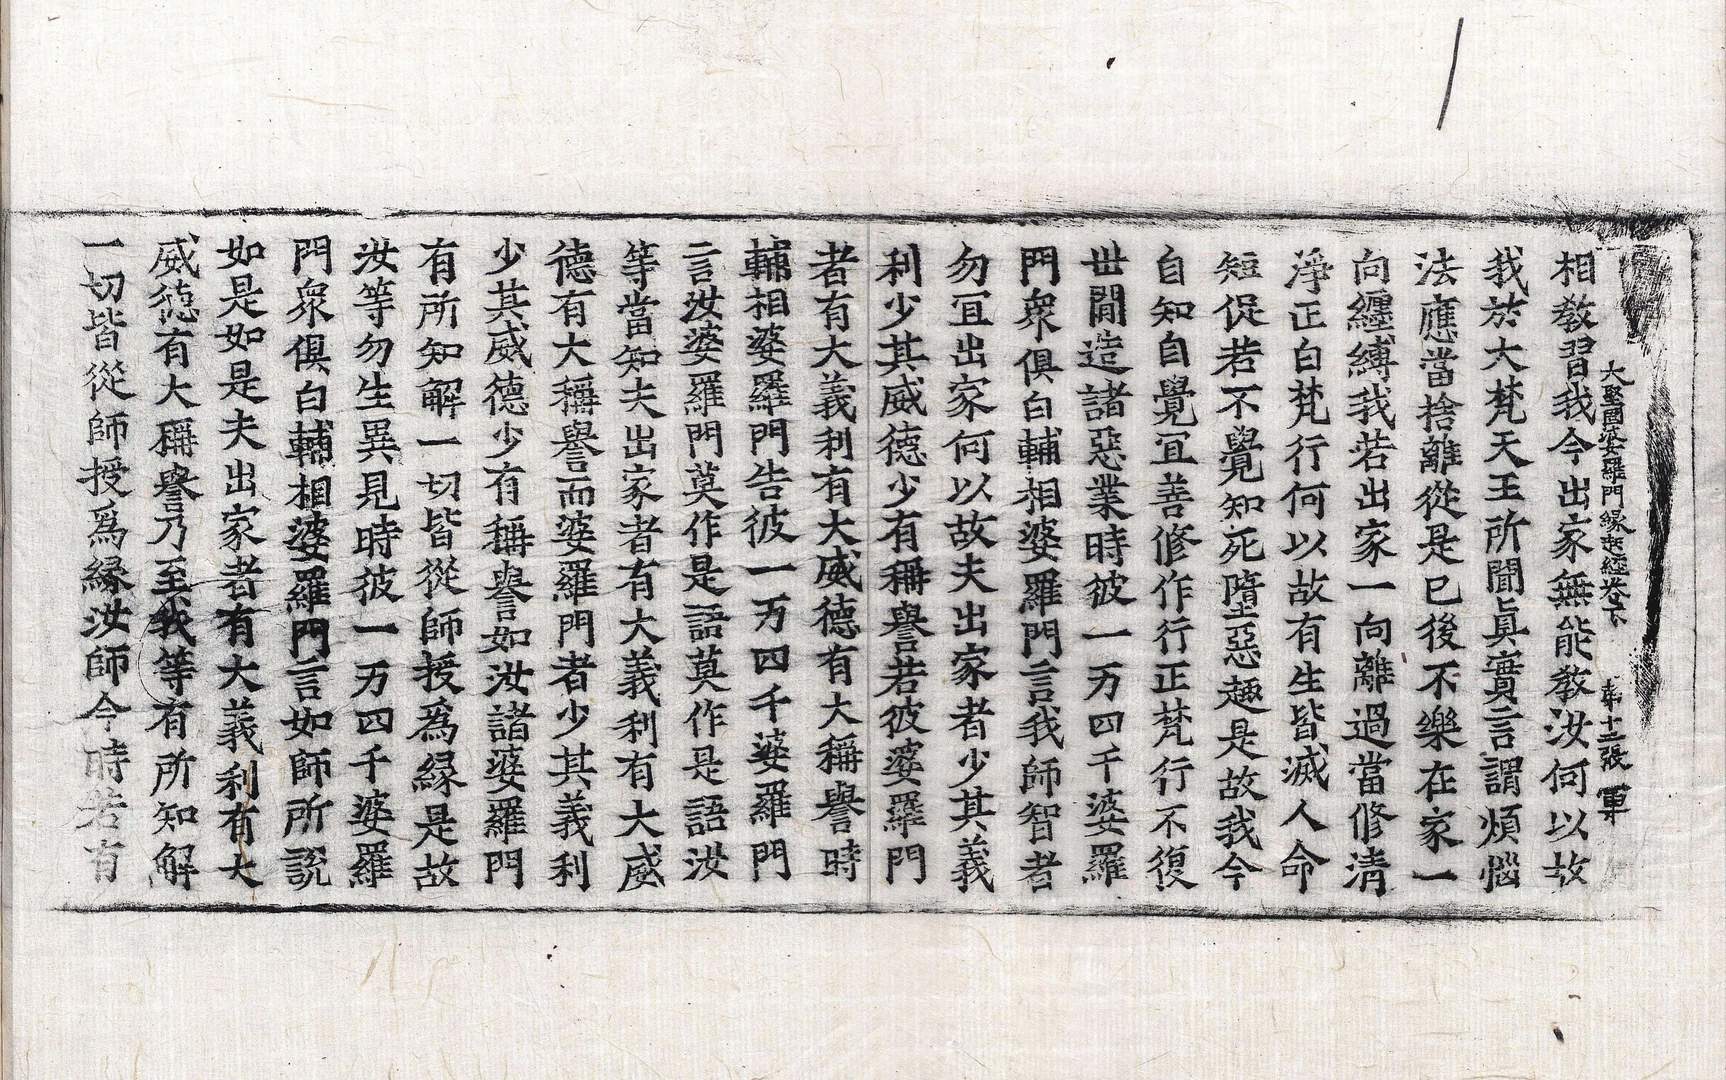 大堅固婆羅門緣起經卷下　第十二張　軍
相教習我今出家無能教汝何以故
我於大梵天王所聞眞實言謂煩惱
法應當捨離從是已後不樂在家一
向纏縛我若出家一向離過當修清
淨正白梵行何以故有生皆滅人命
短促若不覺知死墮惡趣是故我今
自知自覺宜善修作行正梵行不復
世間造諸惡業時彼一万四千婆羅
門衆俱白輔相婆羅門言我師智者
勿宜出家何以故夫出家者少其義
利少其威德少有稱譽若彼婆羅門
者有大義利有大威德有大稱譽時
輔相婆羅門告彼一万四千婆羅門
言汝婆羅門莫作是語莫作是語汝
等當知夫出家者有大義利有大威
德有大稱譽而婆羅門者少其義利
少其威德少有稱譽如汝諸婆羅門
有所知解一切皆從師授爲緣是故
汝等勿生異見時彼一万四千婆羅
門衆俱白輔相婆羅門言如師所說
如是如是夫出家者有大義利有大
威德有大稱譽乃至我等有所知解
一切皆從師授爲緣汝師今時若有